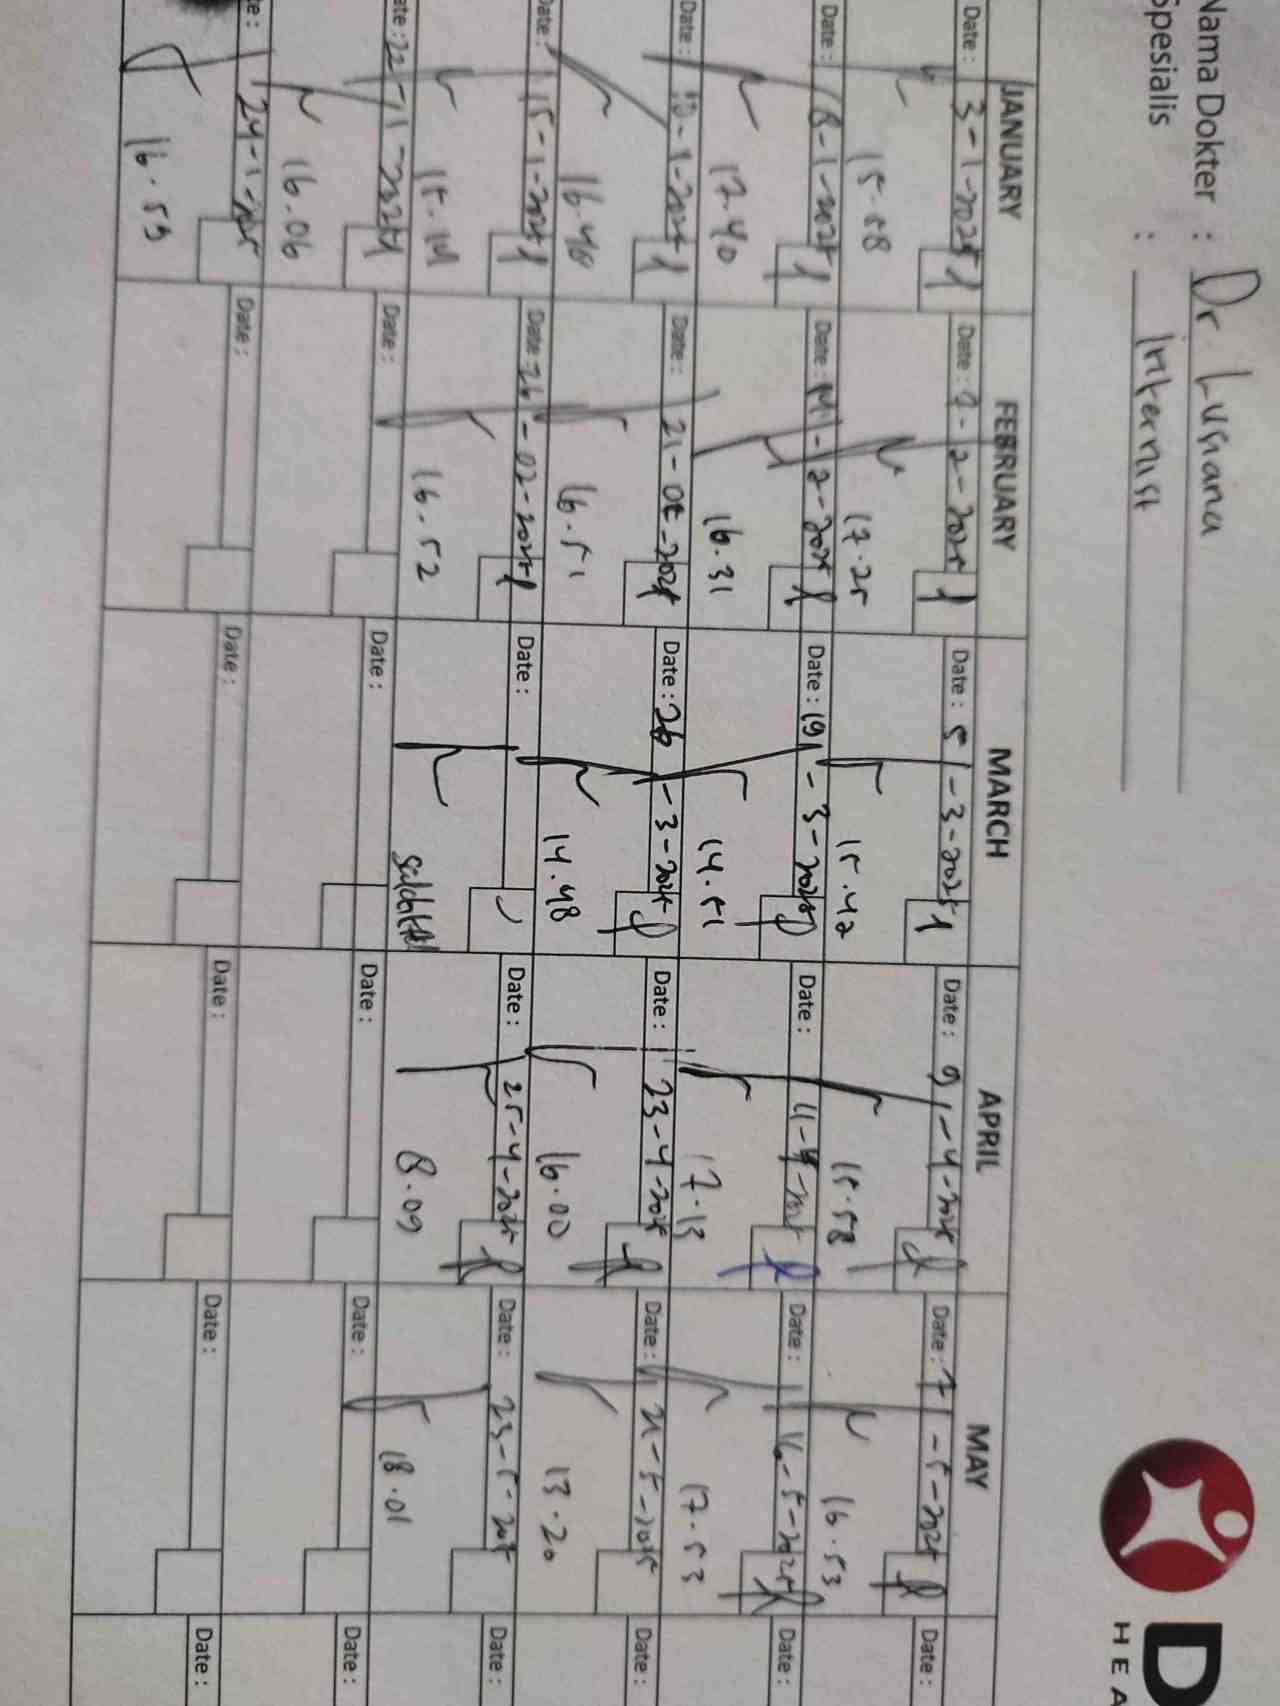 Nama Dokter : Dr. Lusiana
Spesialis : Internist
D
HEA
JANUARY FEBRUARY MARCH APRIL MAY
Date: 3-1-2025 Date: 7-2-2025 Date: 5-3-2025 Date: 9-4-2025 Date: 7-5-2025 Date:
15.58 17.25 15.42 15.58 16.53
Date: 8-1-2025 Date: 2-2025 Date: 19-3-2025 Date: 11-4-2025 Date: 16-5-2025 Date:
17.40 16.31 14.51 17.13 17.53
Date: 10-1-2025 Date: 21-02-2025 Date: 26-3-2025 Date: 23-4-2025 Date: 21-5-2025 Date:
16.40 16.51 14.48 16.00 13.20
Date: 15-1-2025 Date: 26-02-2025 Date: Date: 25-4-2025 Date: 23-5-2025 Date:
15.14 16.52 8.09 18.01
Date: 22-1-2025 Date: Date: Date: Date: Date:
16.06
Date: 24-1-2025 Date: Date: Date: Date: Date:
16.59